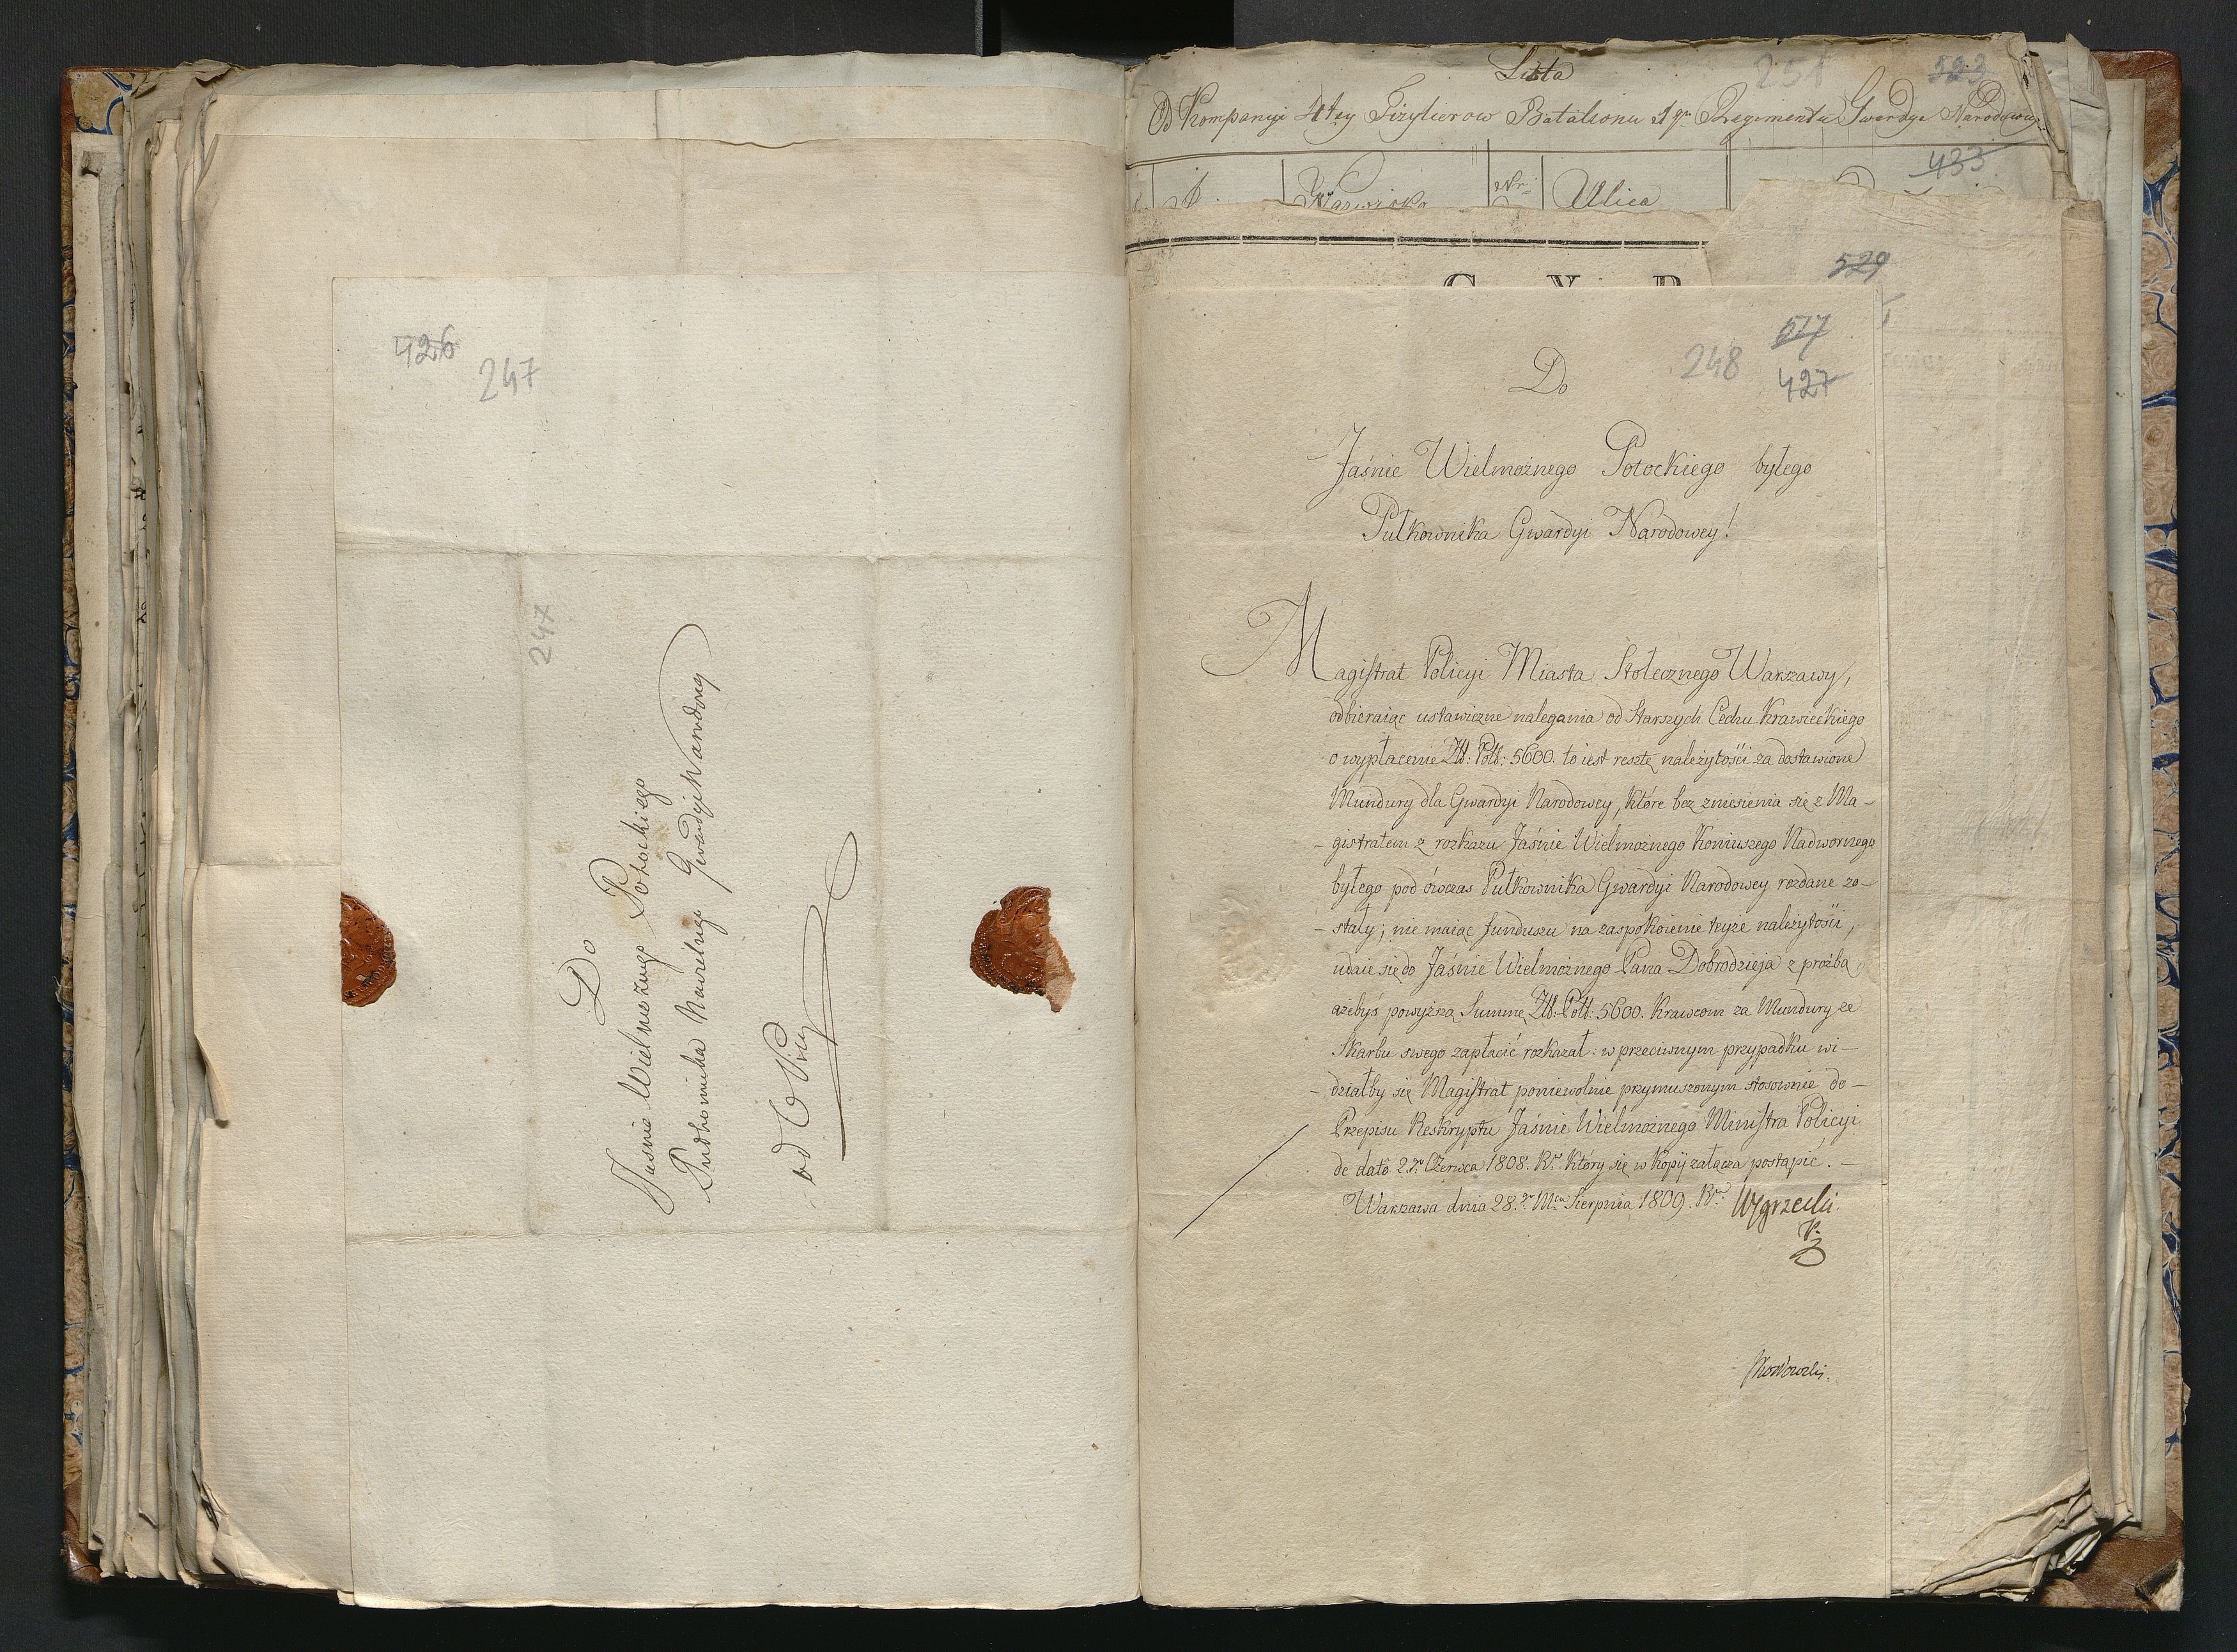 426
247
247
Do
Jaśnie Wielmożnego Potockiego
Pułkownika Gwardyi Narodowey
od
Lista
251
523
Od Kompanyi 4tey Fizylierow Batalionu 1go Regimentu Gwardyi Narodowey
433
Nazwisko
Nr
Ulica
529
G Y R
517
248
427
Do
Jaśnie Wielmożnego Potockiego byłego
Pułkownika Gwardyi Narodowey!
Magistrat Policyi Miasta Stołecznego Warszawy,
odbieraiąc ustawiczne nalegania od Starszych Cechu Krawieckiego
o wypłacenie Zł: Pol: 5600. to iest resztę należytości za dostawione
Mundury dla Gwardyi Narodowey, które bez zniesienia się z Ma-
-gistratem z rozkazu Jaśnie Wielmożnego Koniuszego Nadwornego
byłego pod ówczas Pułkownika Gwardyi Narodowey rozdane zo-
-stały; nie maiąc funduszu na zaspokoienie teyże należytości,
udaie się do Jaśnie Wielmożnego Pana Dobrodzieja z proźbą
ażebyś powyższą Summę Zł: Pol: 5600. Krawcom za Mundury ze
Skarbu swego zapłacić rozkazał: w przeciwnym przypadku wi-
-działby się Magistrat poniewolnie przymuszonym stosownie do-
Przepisu Reskryptu Jaśnie Wielmożnego Ministra Policyi
de dato 2go Czerwca 1808. Ru który się w kopij załącza postąpić. -
Warszawa dnia 28go Mca Sierpnia 1809. Ru Węgrzecki
P.